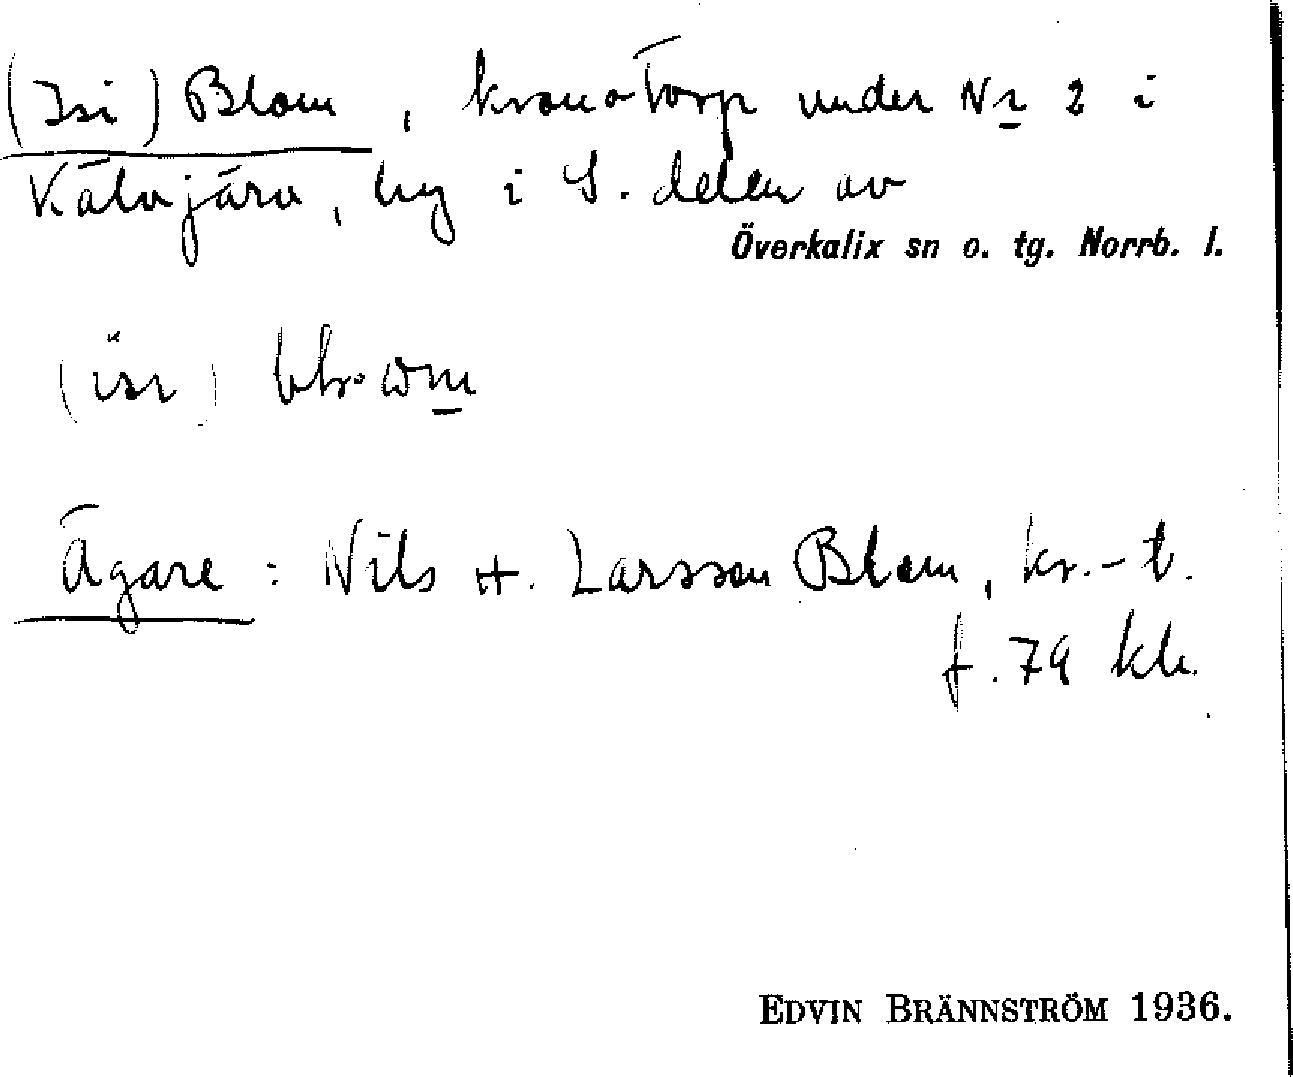 (Isi) Blom, kronotorp under Nr 2 i
Kälvjärv, by i S. delen av
Överkalix sn o. tg. Norrb. l.
Ägare: Nils H. Larsson Blom, kr.-t.
f. 79 klx.
EDVIN BRÄNNSTRÖM 1936.